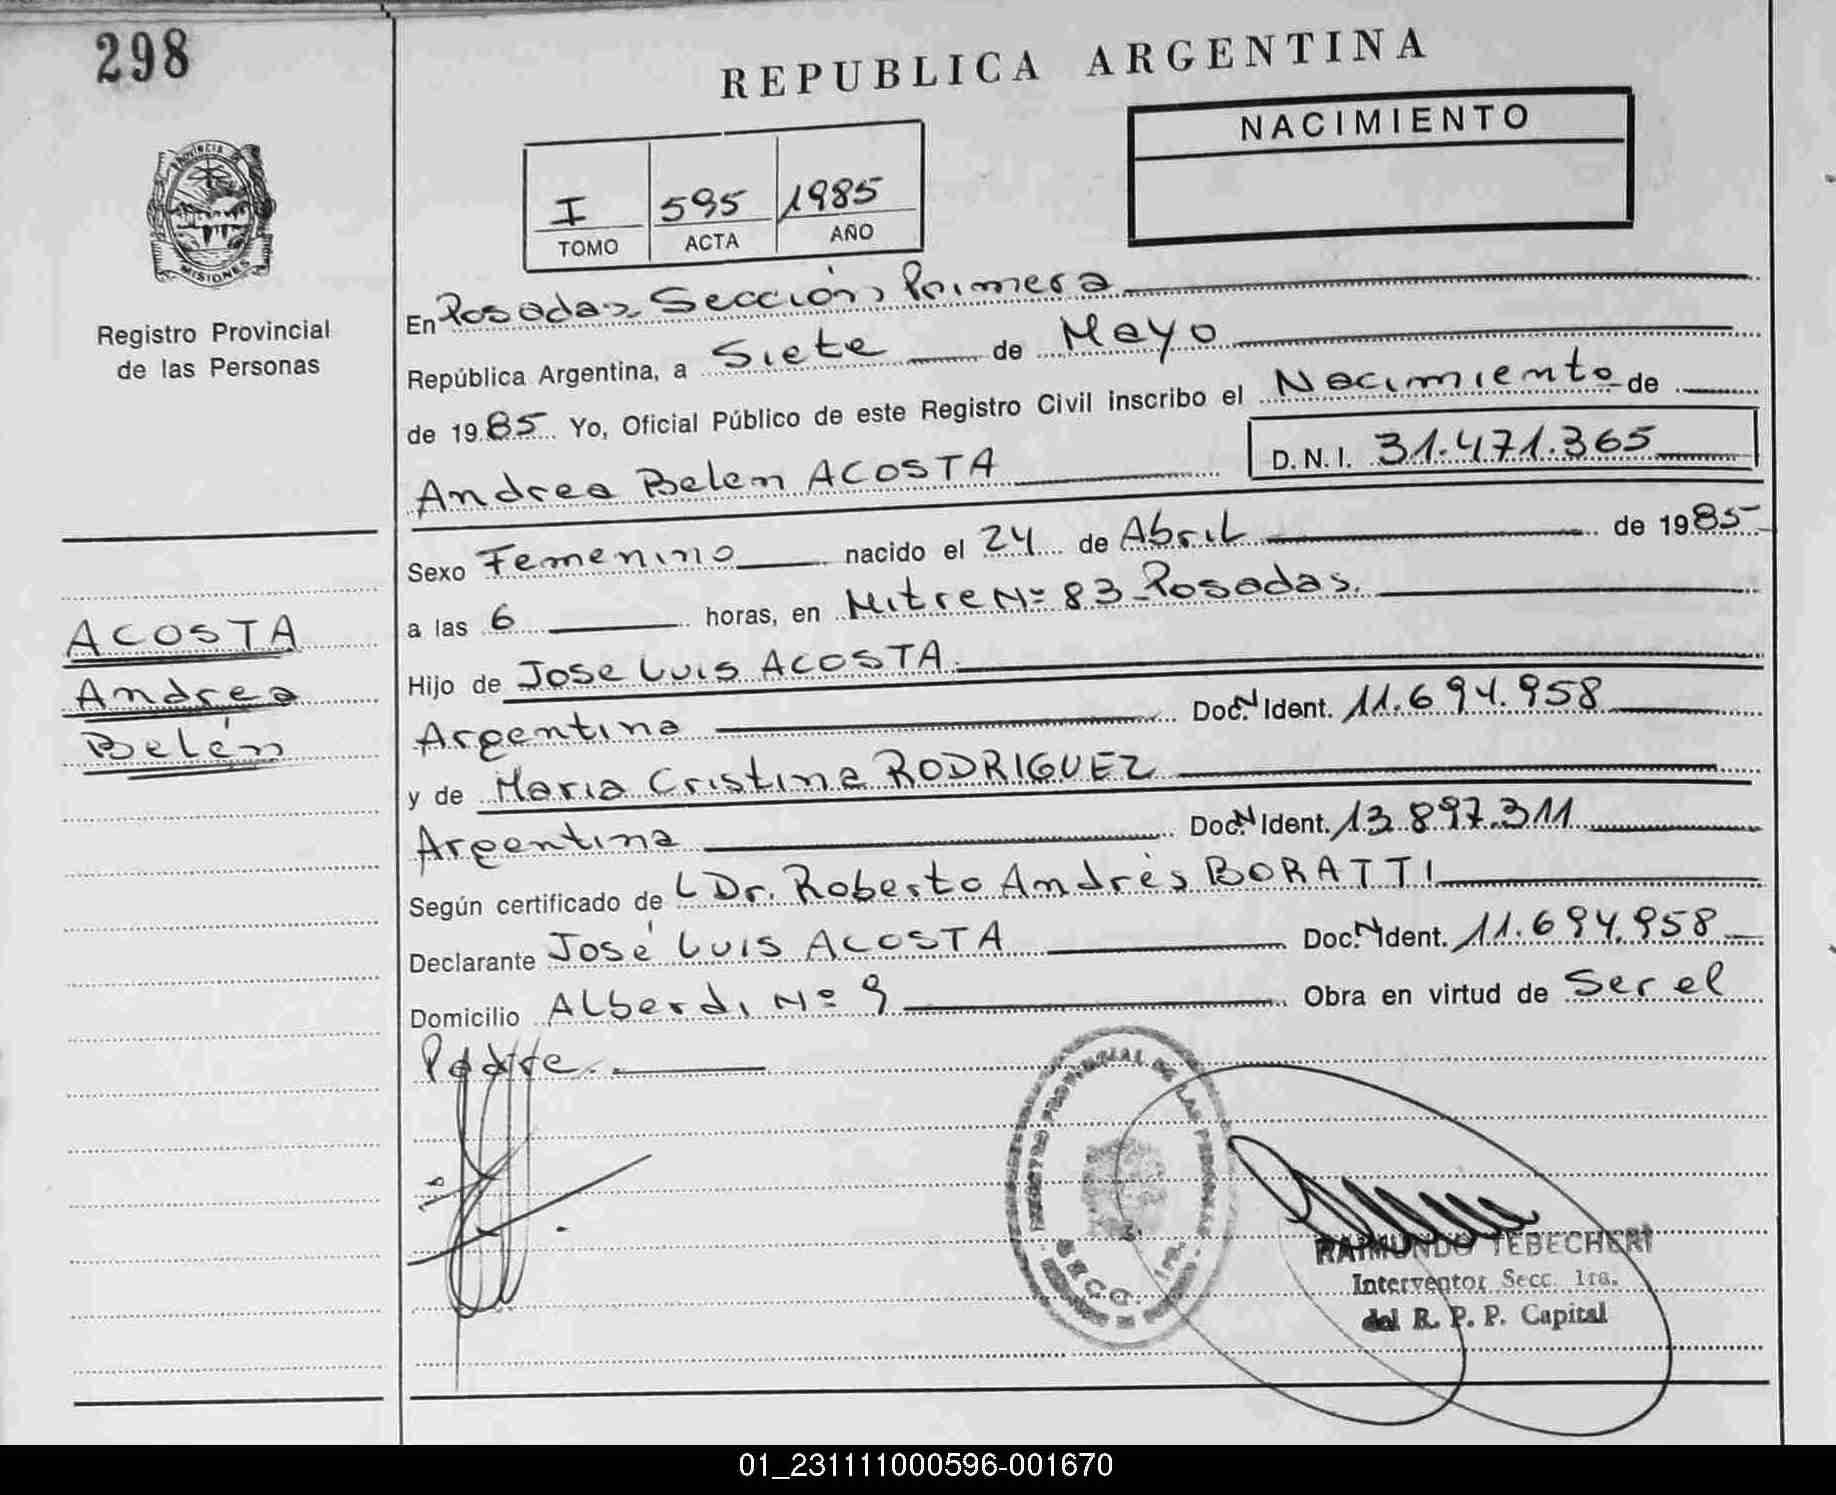 298
REPUBLICA ARGENTINA
NACIMIENTO
I 595 1985
TOMO ACTA AÑO
PROVINCIA
MISIONES
Registro Provincial
de las Personas
En Posadas, Sección Primera
República Argentina, a Siete de Mayo
de 1985 Yo, Oficial Público de este Registro Civil inscribo el Nacimiento de
Andrea Belen ACOSTA D.N.I. 31.471.365
Sexo Femenino nacido el 24 de Abril de 1985
a las 6 horas, en Mitre Nº 83 - Posadas.
ACOSTA
Andrea
Belén
Hijo de Jose Luis ACOSTA
Argentina Doc. N Ident. 11.694.958
y de Maria Cristina RODRIGUEZ
Argentina Doc. N Ident. 13.897.311
Según certificado de L Dr. Roberto Andrés BORATTI
Declarante José Luis ACOSTA Doc. N Ident. 11.694.958
Domicilio Alberdi Nº 9 Obra en virtud de Ser el
Padre.
REGISTRO PROVINCIAL DE LAS PERSONAS
SECC. 1ra.
RAIMUNDO TEBECHERI
Interventor Secc. 1ra.
del R. P. P. Capital
01_231111000596-001670